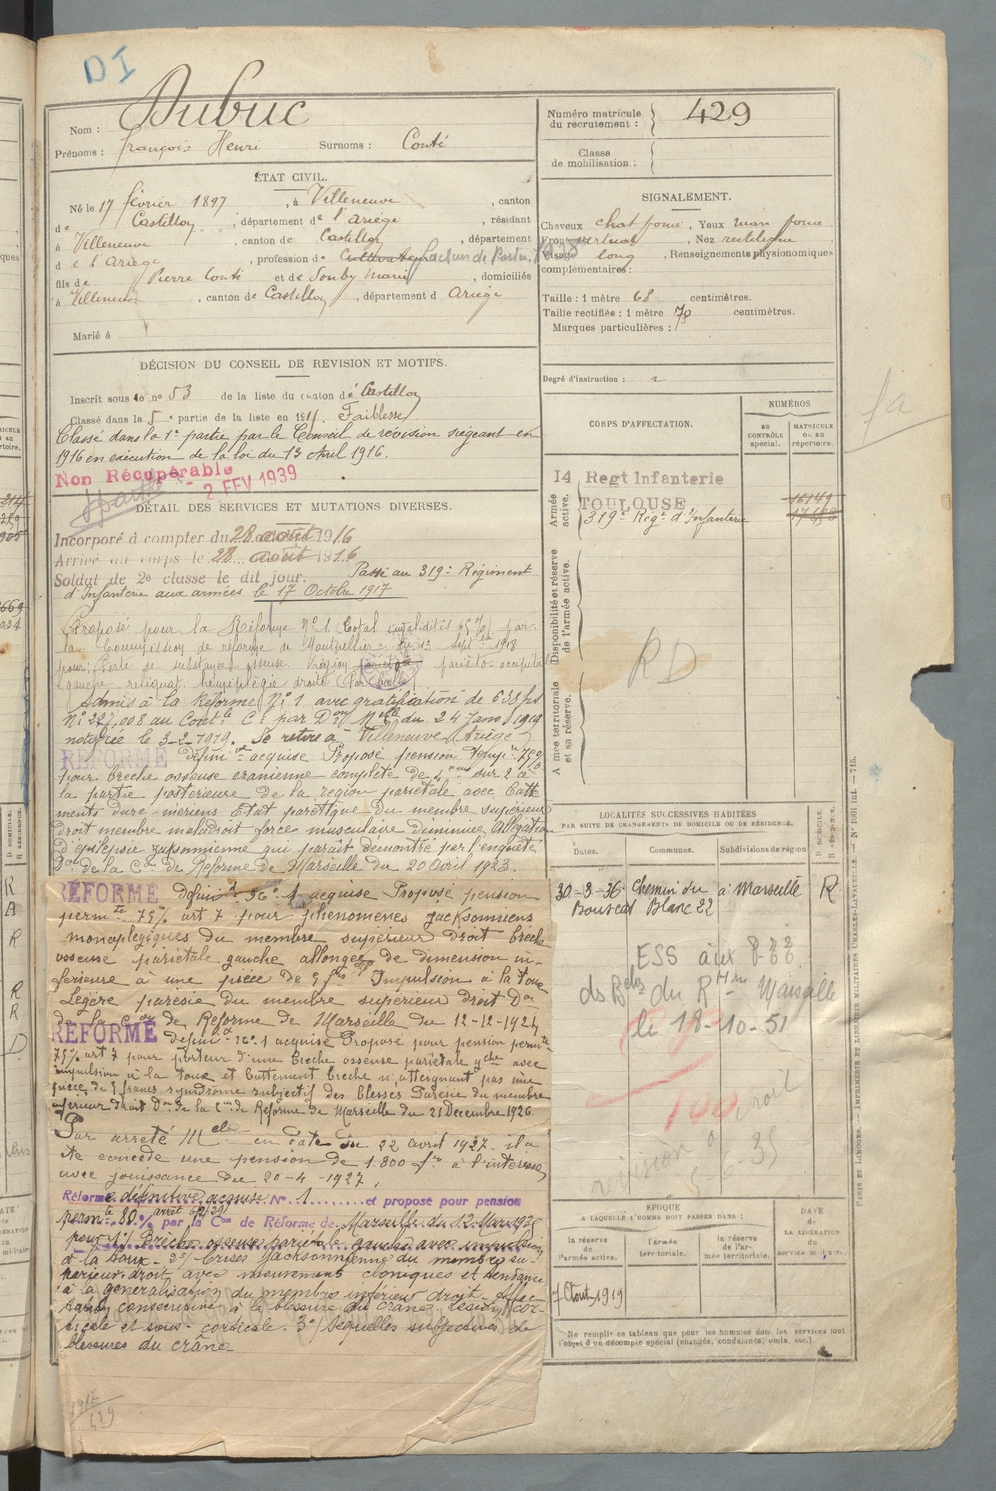 DI
Nom : Dubuc
Prénoms : François Henri Surnoms : Conté
Numéro matricule du recrutement : 429
Classe de mobilisation :
ÉTAT CIVIL.
Né le 17 février 1897, à Villeneuve, canton
de Castillon, département de l'Ariège, résidant
à Villeneuve, canton de Castillon, département
d e l'Ariège, profession de Cultivateur
fils de Pierre Conté et de Souby Marie, domiciliés
à Villeneuve, canton de Castillon, département d Ariège
Marié à
SIGNALEMENT.
Cheveux chat foncé, Yeux marr foncé
Front vertical, Nez rectiligne
Visage long, Renseignements physionomiques
complémentaires :
Taille : 1 mètre 68 centimètres.
Taille rectifiée : 1 mètre 70 centimètres.
Marques particulières :
Degré d'instruction : 2
DÉCISION DU CONSEIL DE REVISION ET MOTIFS.
Inscrit sous le no 53 de la liste du canton de Castillon
Classé dans la 5e partie de la liste en 191 . Faiblesse
Classé dans la 1e partie par le Conseil de révision siégeant en
1916 en exécution de la loi du 13 Avril 1916.
Non Récupérable
2 FEV 1939
DÉTAIL DES SERVICES ET MUTATIONS DIVERSES.
Incorporé à compter du 28 août 1916
Arrivé au corps le 28 août 1916
Soldat de 2e classe le dit jour. Passé au 319e Régiment
d'Infanterie aux armées le 17 Octobre 1917
Proposé pour la Réforme N° 1 (total invalidités 65%) par
la Commission de réforme de Montpellier du 13 Septbre 1918
pour: Perte de substance osseuse région pariéto occipitale
gauche reliquat hémiplégie droite
Admis à la Réforme N° 1 avec gratification de 638 frs
N° 227.008 au Contle Cl par Don Mlle du 24 Janv 1919
notifiée le 3-2-1919. Se retire à Villeneuve (Ariège)
REFORME définivt acquise Proposé pension temp. 75%
pour brèche osseuse cranienne complète de 4cm sur 2 à
la partie posterieure de la region pariétale avec batte
ments dure-mériens Etat parétique du membre supérieur
droit membre maladroit force musculaire diminuée Allégation
d'épilepsie jaksonnienne qui parait demontré par l'enquête
Don de la Con de Réforme de Marseille du 20 Avril 1923.
REFORME définivt n° 1 acquise Proposé pension
permte 75% art 7 pour phénomènes jacksonniens
monoplégiques du membre supérieur droit brèche
osseuse pariétale gauche allongée de dimension in-
férieure à une pièce de 5 frs Impulsion à la toux
Légère parésie du membre supérieur droit Don
de la Con de Réforme de Marseille du 12-12-1924
REFORME définivt n° 1 acquise Proposé pour pension permte
75% art 7 pour porteur d'une brèche osseuse pariétale gche avec
impulsion à la toux et battement breche n'atteignant pas une
pièce de 5 francs syndrôme subjectif des blessés Parésie du membre
supérieur droit Don de la Con de Réforme de Marseille du 21 Decembre 1926
Par arreté Mel en date du 22 avril 1927 il a
été concédé une pension de 1.800 frs à l'intéressé
avec jouissance du 20-4-1927.
Réforme définitive acquise N° 1 et proposé pour pension
permte 80 % par la Con de Réforme de Marseille du 12 Mars 1935
pour 1°/ Brèche osseuse pariétale gauche avec impulsion
à la toux - 2°/ Crises Jacksonniennes du membre su-
périeur droit avec mouvements cloniques et tendance
à la generalisation du membre inférieur droit - Affec
tation consécutive à la blessure du crâne - lésion cor-
ticale et sous-corticale. 3°/ Séquelles subjectives de
blessures du crâne
1917
429
CORPS D'AFFECTATION.
NUMÉROS
au contrôle spécial.
matricule ou au répertoire.
Armée active.
14 Regt Infanterie
TOULOUSE 16149
319e Régt d'Infanterie
Disponibilité et réserve de l'armée active.
RD
Armée territoriale et sa réserve.
fa
LOCALITÉS SUCCESSIVES HABITÉES
PAR SUITE DE CHANGEMENTS DE DOMICILE OU DE RÉSIDENCE.
Dates. Communes. Subdivisions de région D. DOMICILE. R. RÉSIDENCE.
30-3-36 Chemin du à Marseille R
Blanc 22
le 18-10-51
100
révision
ÉPOQUE
A LAQUELLE L'HOMME DOIT PASSER DANS :
la réserve de l'armée active.
l'armée territoriale.
la réserve de l'armée territoriale.
DATE de LA LIBÉRATION du service militaire.
1 Août 1919
Ne remplir ce tableau que pour les hommes dont les services font
l'objet d'un décompte spécial (engagés, condamnés, omis, etc.)
PARIS ET LIMOGES. — IMPRIMERIE ET LIBRAIRIE MILITAIRES CHARLES-LAVAUZELLE. — N° 1001 int. — 715.